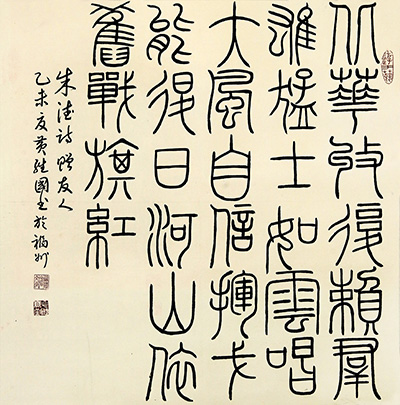 北華收復賴羣
雄猛士如雲唱
大風自信揮戈
能退日河山依
舊戰旗紅
朱德詩贈友人
乙未夏黃維國书於福州